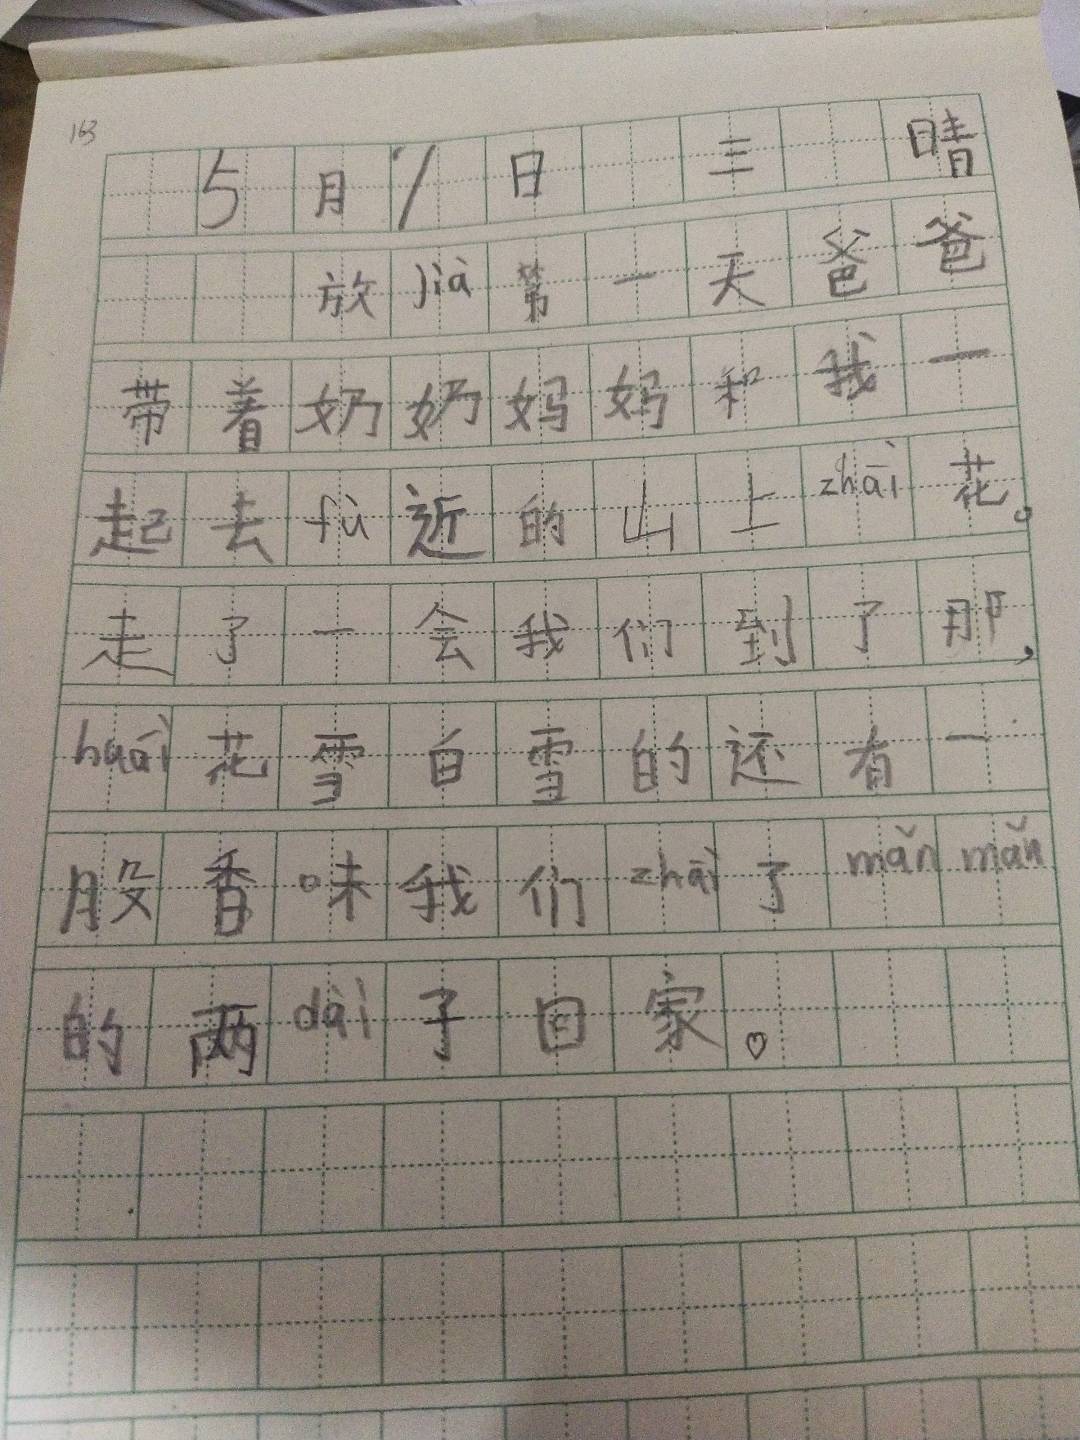 163
5月1日 三 晴
放jià第一天爸爸
带着奶奶妈妈和我一
起去fù近的山上zhāi花。
走了一会我们到了那,
huái花雪白雪的还有一
股香味我们zhāi了mǎn mǎn
的两dài子回家。